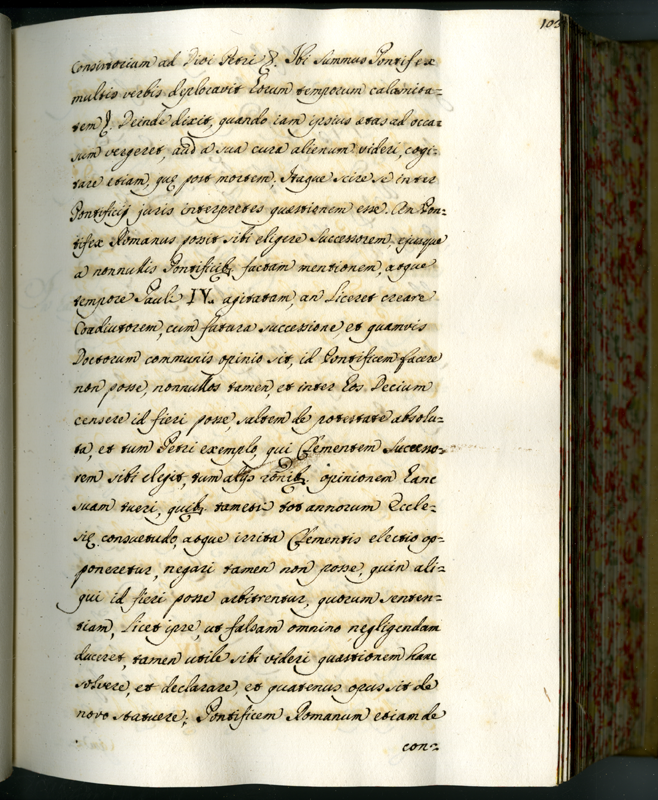 103
Consistorium ad Divi Petri &. Ibi summus Pontifex
multis verbis deploravit Eorum temporum calamita=
tem &. Deinde dixit, quando iam ipsius ætas ad occa=
sum vergeret, haud a sua cura alienum videri, cogi=
tare etiam, quę post mortem; Itaque scire se inter
Pontificij juris interpretes quæstionem esse. An Pon=
tifex Romanus possit sibi eligere Successorem, ejusque
a nonnullis Pontificib; factam mentionem, atque
tempore Pauli IV. agitatam, an Liceret creare
Coadiutorem, cum futura successione, et quamvis
Doctorum communis opinio sit, id Pontificem facere
non posse, nonnullos tamen, et inter Eos Decium
censere id fieri posse, saltem de potestate absolu=
ta, et tum Petri exemplo, qui Clementem Successo=
rem sibi elegit, tum alijs rōnib; opinionem hanc
suam tueri, quib; tametsi tot annorum Eccle=
się consuetudo, atque irrita Clementis electio op=
poneretur, negari tamen non posse, quin ali=
qui id fieri posse arbitrentur, quorum senten=
tiam, Licet ipse, ut falsam omnino negligendam
duceret, tamen utile sibi videri quæstionem hanc
solvere, et declarare, et quatenus opus sit de
novo statuere; Pontificem Romanum etiam de
con=